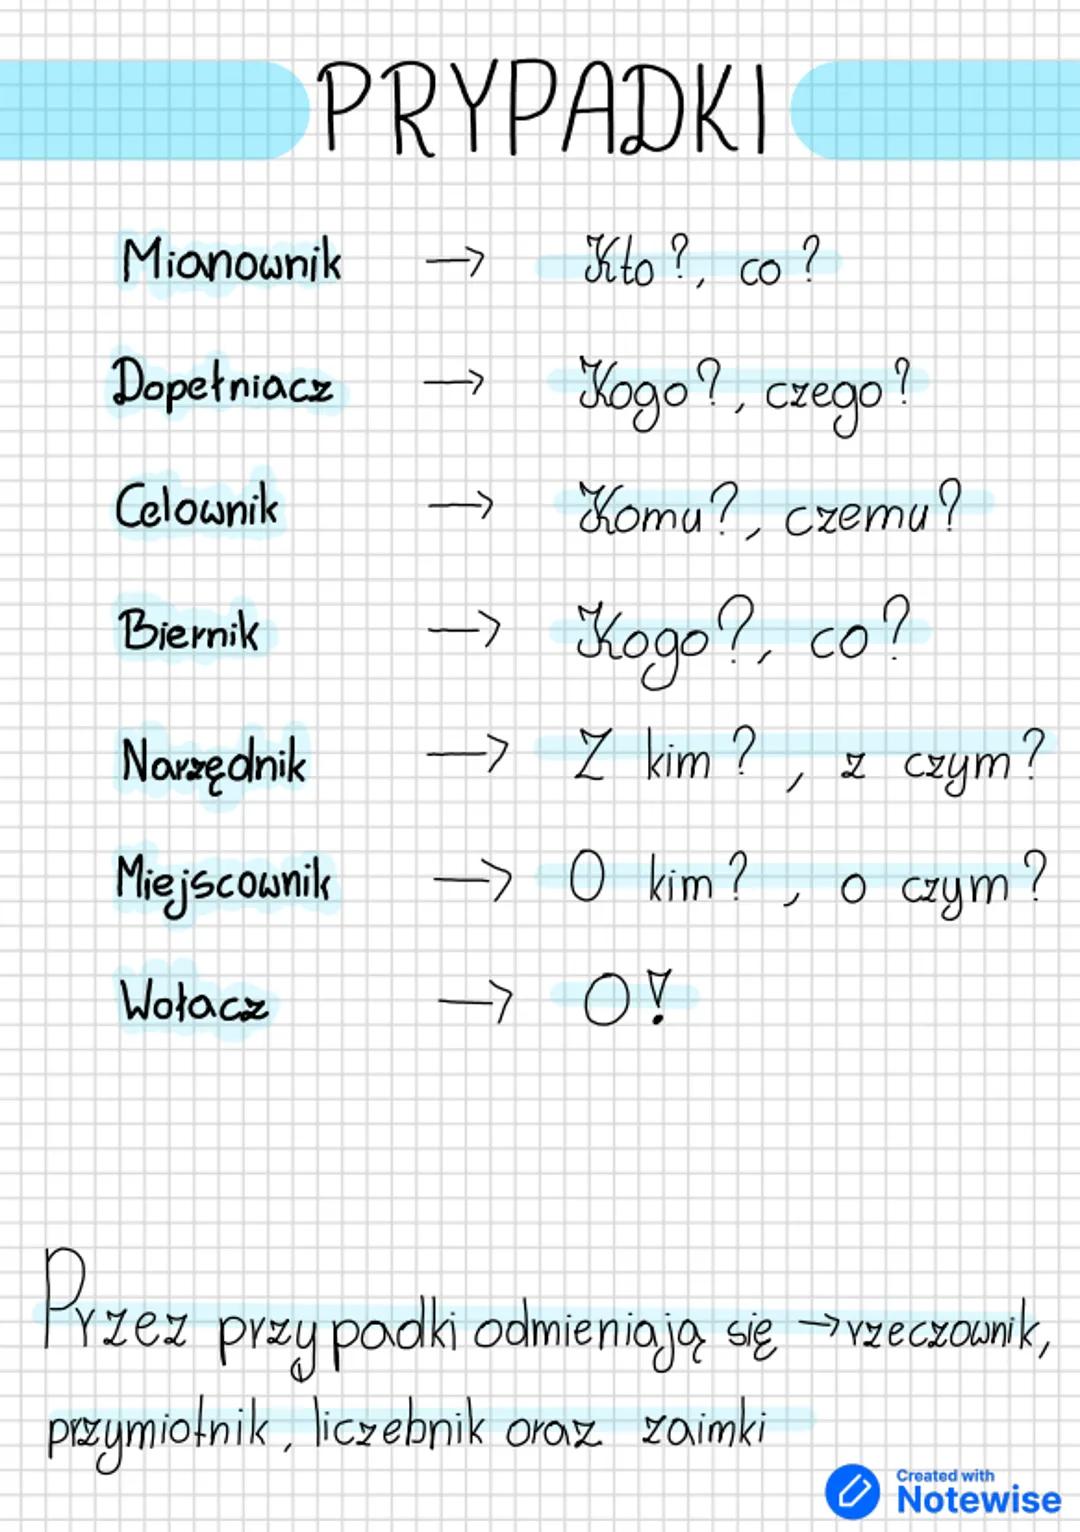 PRYPADKI
Mianownik → Kto?, co?
Dopełniacz → Kogo?, czego?
Celownik → Komu?, czemu?
Biernik → Kogo?, co?
Narzędnik → Z kim?, z czym?
Miejscownik → O kim?, o czym?
Wołacz → O!
Przez przypadki odmieniają się → rzeczownik,
przymiotnik, liczebnik oraz zaimki
Created with
Notewise